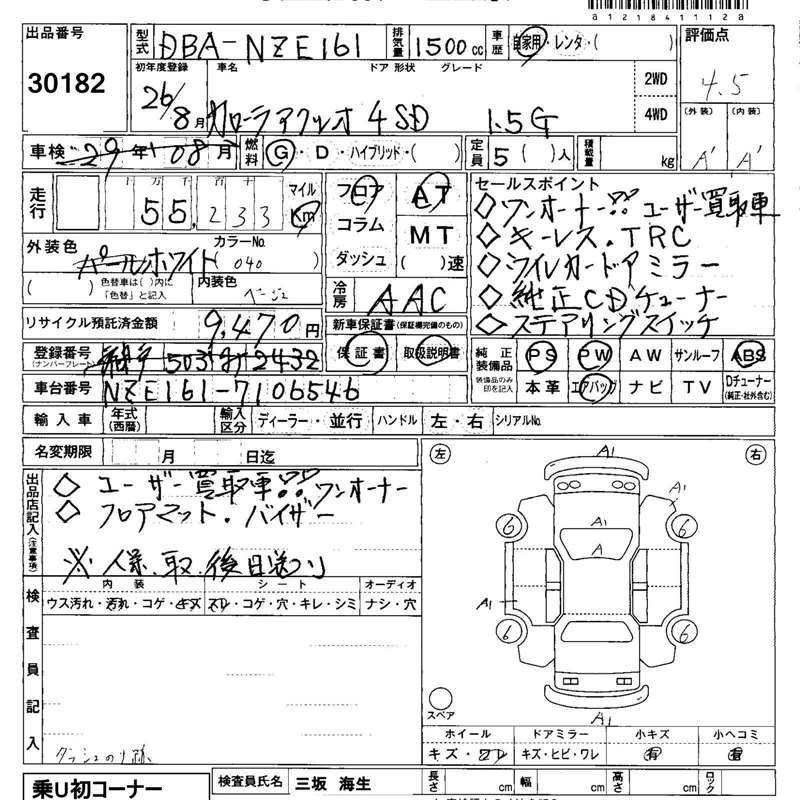 a12184111​2a
出品番号
30182
型式 DBA-NZE161 排気量 1500cc 車歴 自家用・レンタ・( )
評価点
4.5
初年度登録 車名 ドア 形状 グレード
26/8月 カローラアクシオ 4SD 1.5G
2WD
4WD
(外装) (内装)
A' A'
車検 29年08月 燃料 G・D・ハイブリッド・( ) 定員 5( )人 積載量 kg
走行 十万千 55,233 マイル Km
フロア AT
コラム MT
ダッシュ ( )速
セールスポイント
◇ワンオーナー!! ユーザー買取車
◇キーレス.TRC
◇ウインカードアミラー
◇純正CDチューナー
◇ステアリングスイッチ
外装色 パールホワイト カラーNo. (040)
( ) 色替車は( )内に「色替」と記入 内装色 ベージュ
冷房 AAC
リサイクル預託済金額 9470円
新車保証書(保証欄完備のもの)
登録番号(ナンバープレート) 503 2432
保証書 取扱説明書
純正装備品 PS PW AW サンルーフ ABS
装備品のみ印を記入 本革 エアバッグ ナビ TV Dチューナー(純正・社外含む)
車台番号 NZE161-7106546
輸入車 年式(西暦) 輸入区分 ディーラー・並行 ハンドル 左・右 シリアルNo.
名変期限 月 日迄
出品店記入(注意事項)
◇ ユーザー買取車!! ワンオーナー
◇ フロアマット.バイザー
※ 人保.取.後日送り
左 右
A1
A1
6 6
A1
A
A1
6 6
A1
スペア
検査員記入
内装 シート オーディオ
ウス汚れ・汚れ・コゲ・キズ スレ・コゲ・穴・キレ・シミ ナシ・穴
ダッシュのり跡
ホイール ドアミラー 小キズ 小ヘコミ
キズ・スレ キズ・ヒビ・ワレ 有 有
乗U初コーナー
検査員氏名 三坂 海生 長さ cm 幅 cm 高さ cm ロック